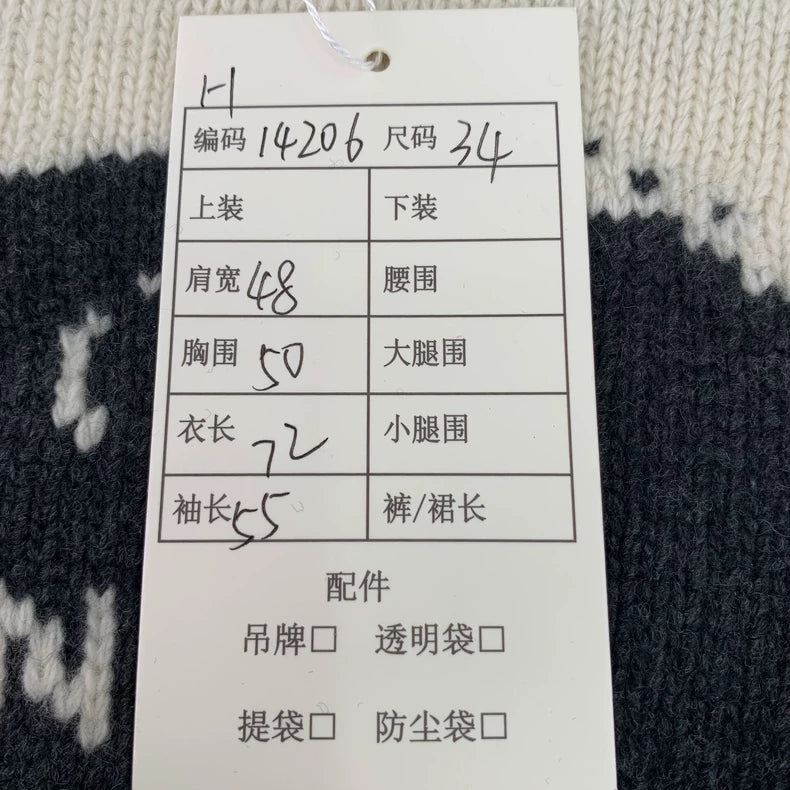 H
编码 14206 尺码 34
上装 下装
肩宽 48 腰围
胸围 50 大腿围
衣长 72 小腿围
袖长 55 裤/裙长
配件
吊牌□ 透明袋□
提袋□ 防尘袋□
N